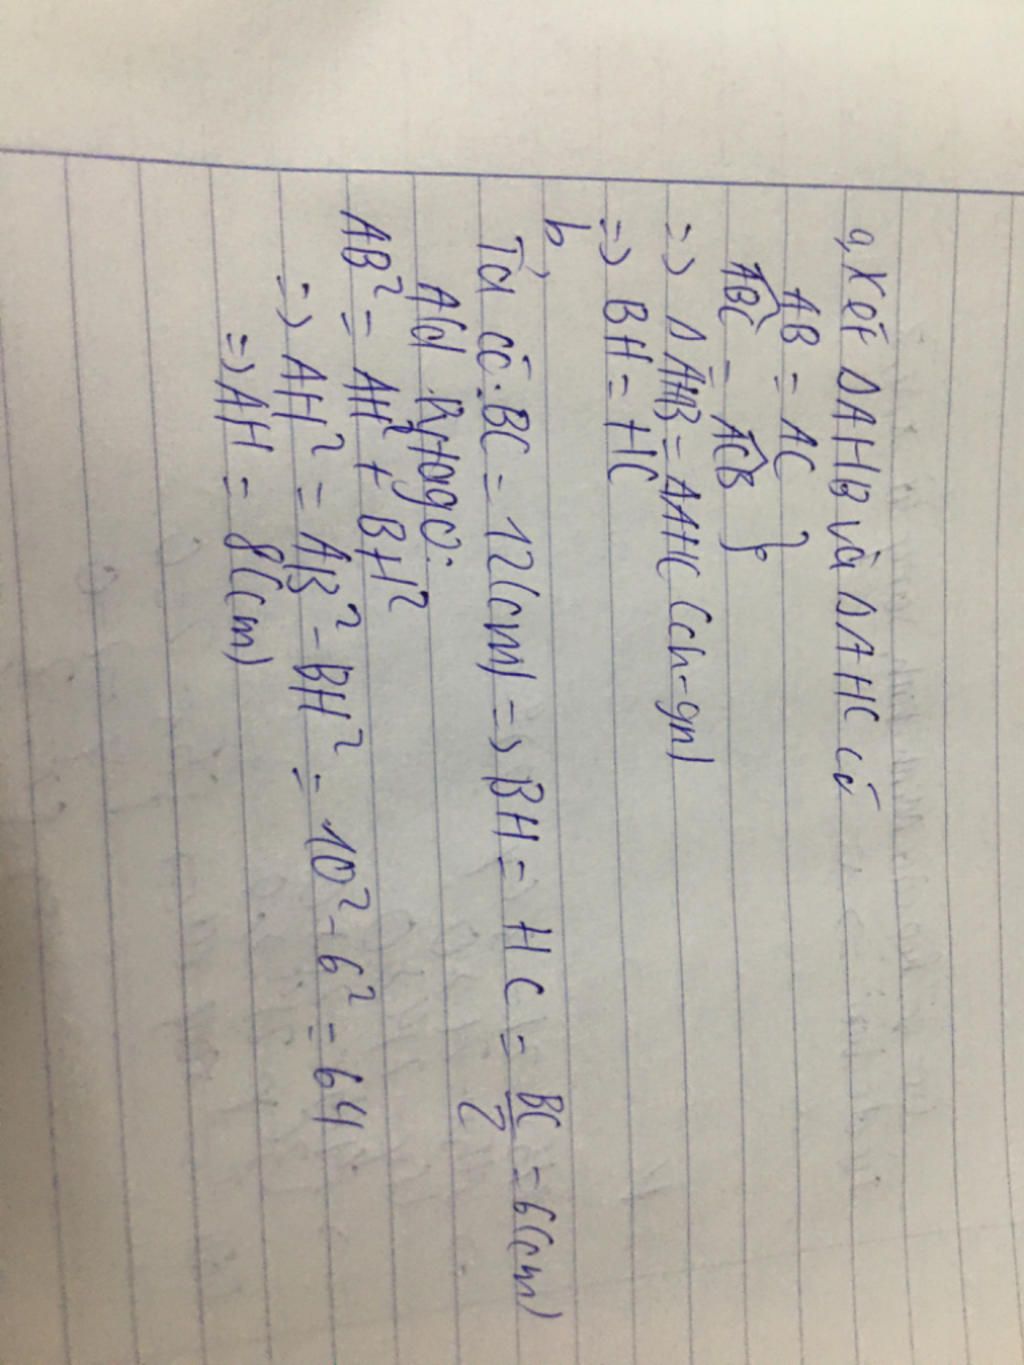 a, Xét ΔAHB và ΔAHC có
AB = AC }
ABC = ACB
=> ΔAHB = ΔAHC (ch-gn)
=> BH = HC
b,
Ta có: BC = 12(cm) => BH = HC = BC/2 = 6(cm)
Acd Pytago:
AB² = AH² + BH²
=> AH² = AB² - BH² = 10² - 6² = 64
=> AH = 8(cm)